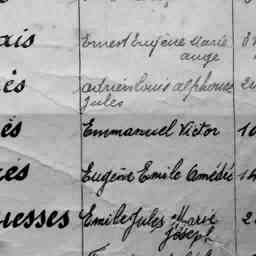 ais Ernest Eugène Marie
ange
és Adrien Louis Alphonse
Jules
és Emmanuel Victor
és Eugène Emile Amédée
uesses Emile Jules Marie
Joseph